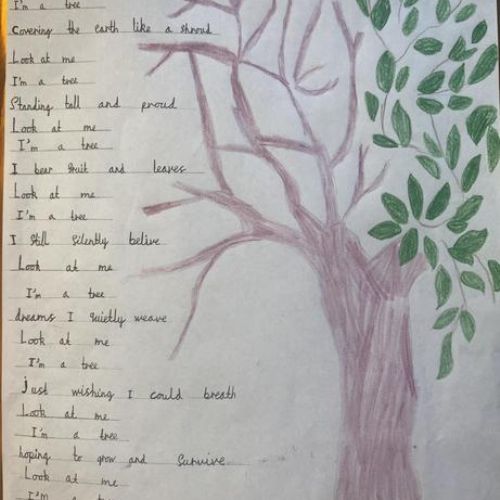 I'm a tree
Covering the earth like a shroud
Look at me
I'm a tree
Standing tall and proud
Look at me
I'm a tree
I bear fruit and leaves
Look at me
I'm a tree
I still silently belive
Look at me
I'm a tree
dreams I quietly weave
Look at me
I'm a tree
just wishing I could breath
Look at me
I'm a tree
hoping to grow and survive
Look at me
I'm a tree